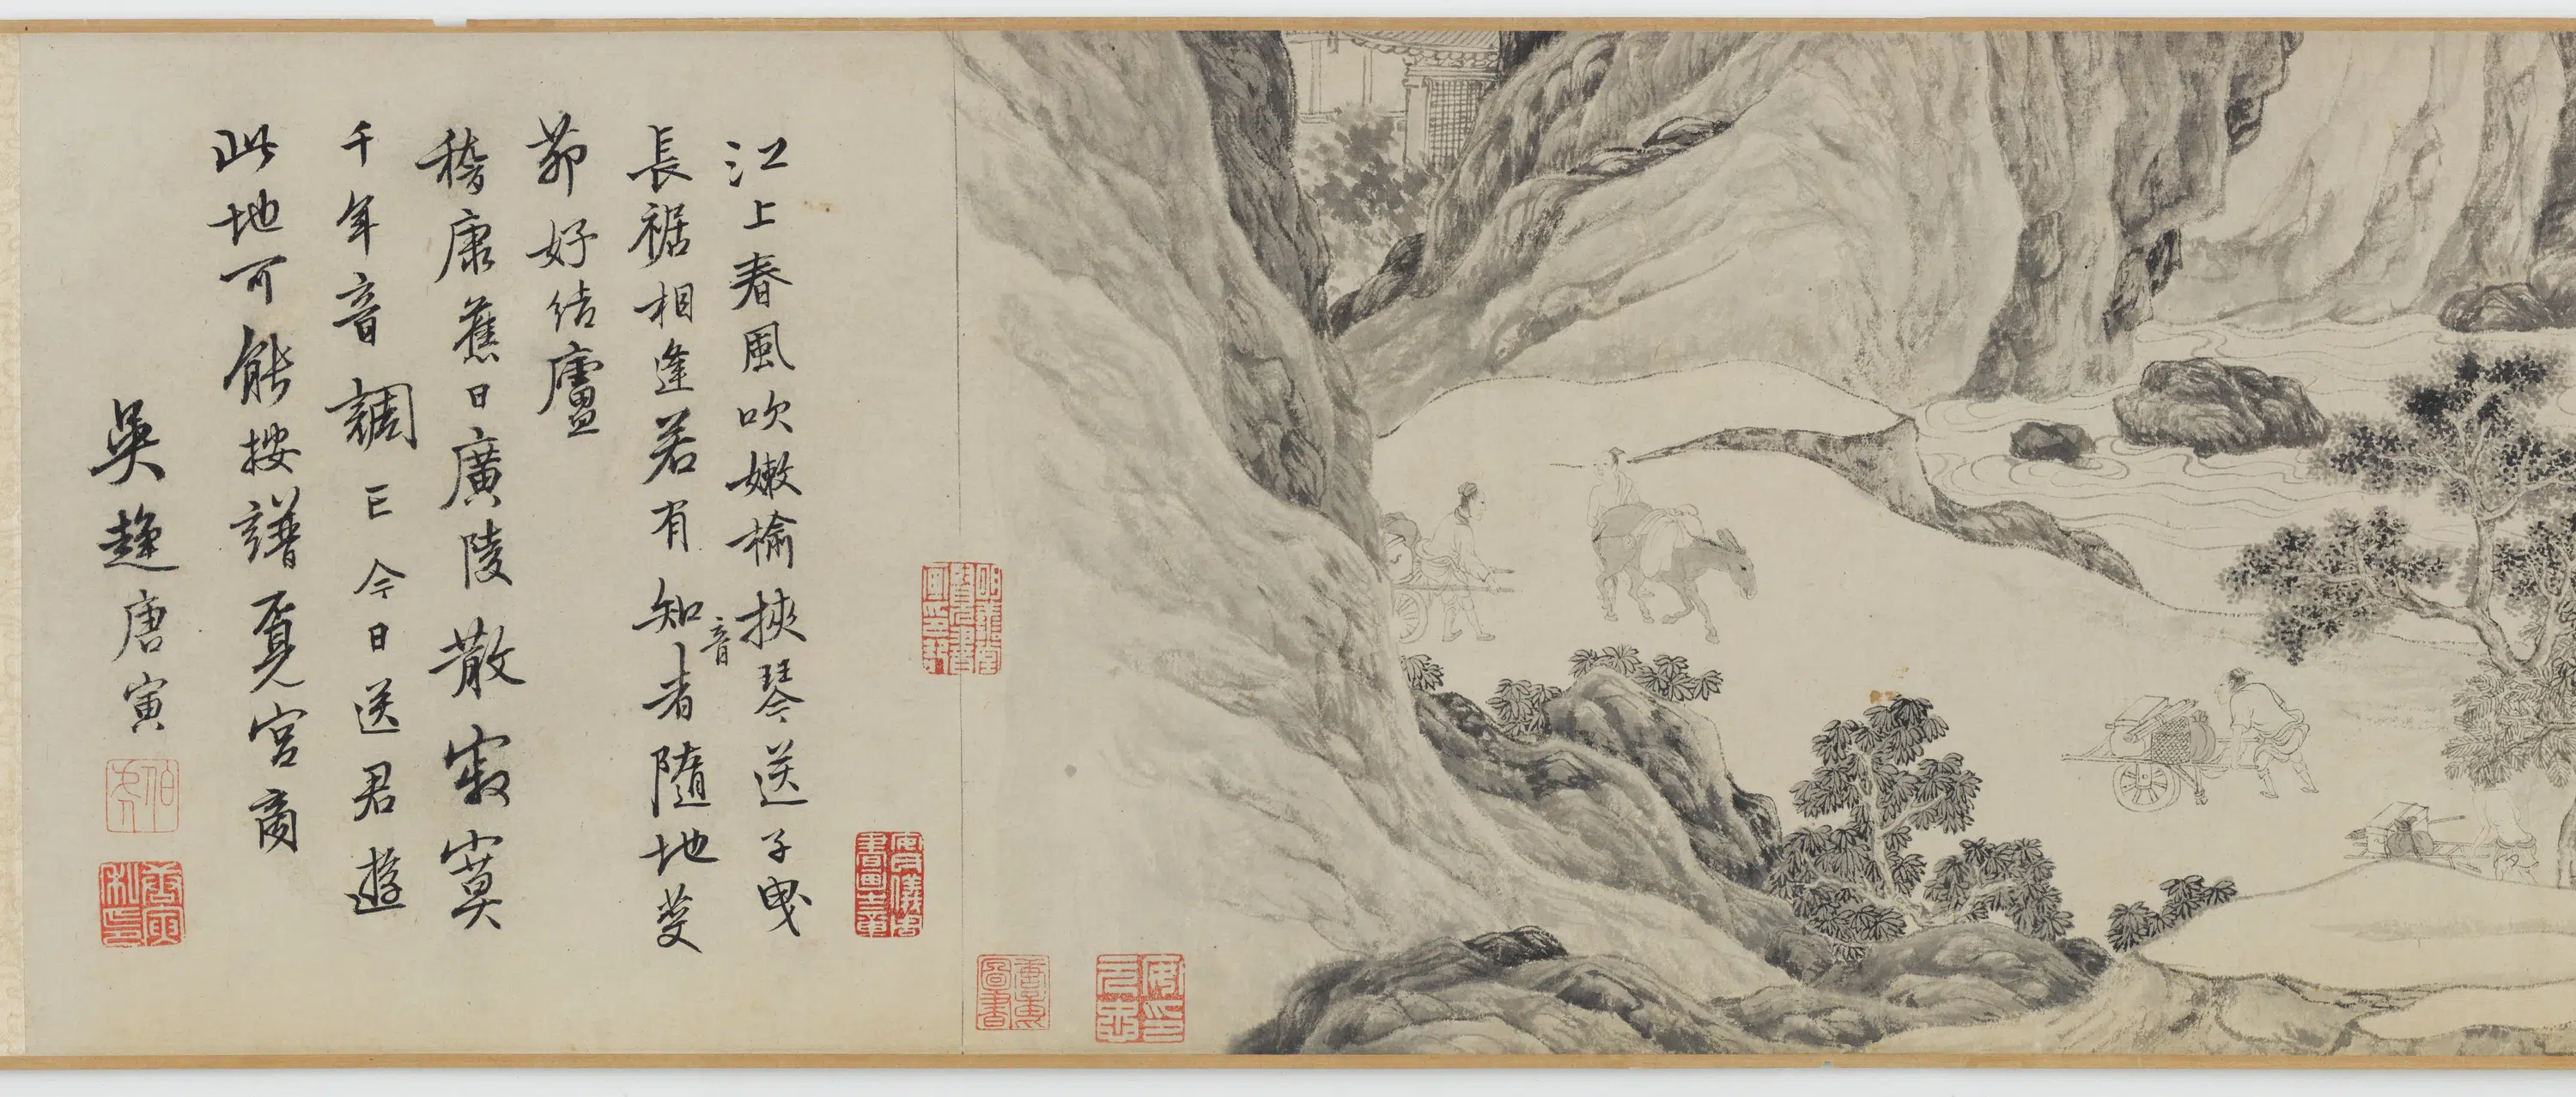 江上春風吹嫩榆挾琴送子曳
長裾相逢若有知音者隨地芟
茆好結廬
嵇康舊日廣陵散寂寞
千年音調亡今日送君遊
此地可能按譜覓宮商
吳趨唐寅